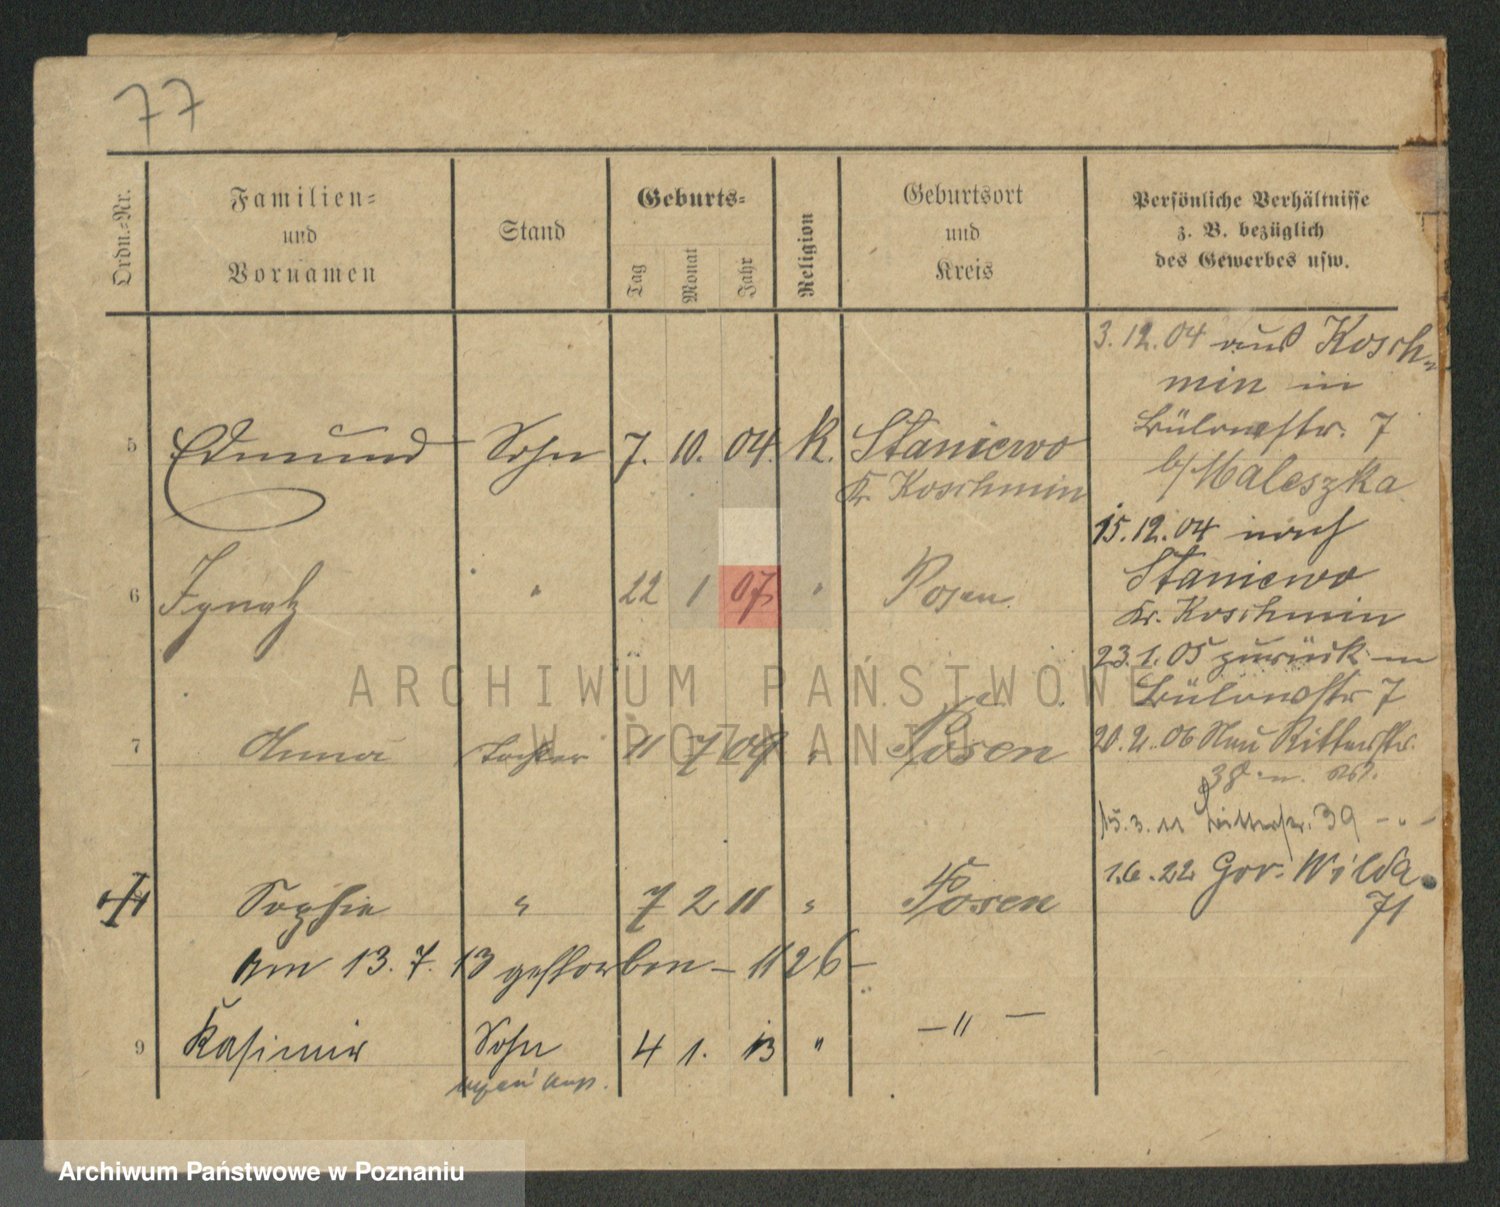 77
Ordn.-Nr.
Familien-
und
Vornamen
Stand
Geburts-
Tag
Monat
Jahr
Religion
Geburtsort
und
Kreis
Persönliche Verhältnisse
z. B. bezüglich
des Gewerbes usw.
5 Edmund Sohn 7. 10. 04. K. Staniewo
Kr. Koschmin
6 Ignatz " 22 1 07 " Posen
7 Anna Tochter 11 7 09 " Posen
Sophie " 7 2 11 " Posen
am 13. 7. 13 gestorben – 1126 –
9 Kasimir Sohn 4 1. 13 " – " –
3.12.04 aus Kosch-
min in
Bülowstr. 7
b/ Maleszka
15.12.04 nach
Staniewo
Kr. Koschmin
23.1.05 zurück in
Bülowstr 7
20. 2. 06 Neu Ritterstr.
38
15.3.11 Ritterstr. 39 – " –
1.6.22 Gór. Wilda
71
ARCHIWUM PAŃSTWOWE
W POZNANIU
Archiwum Państwowe w Poznaniu